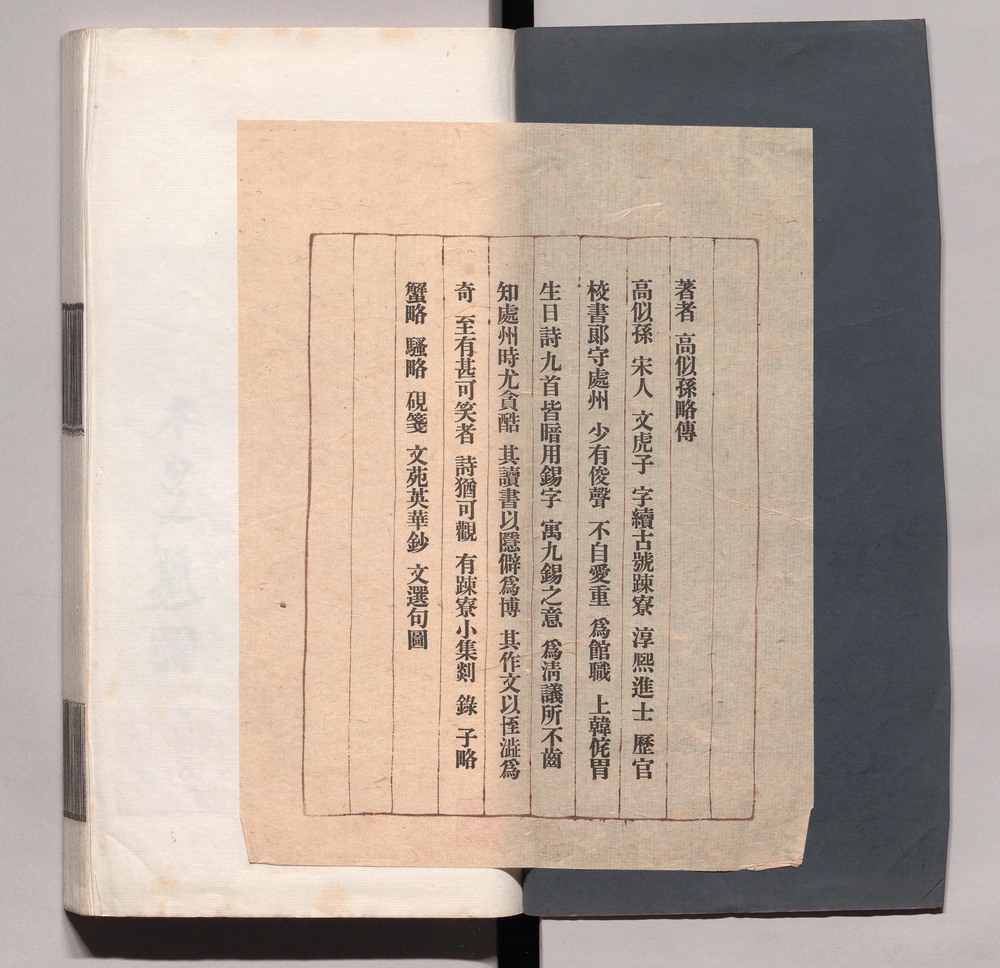 著者 高似孫略傳
高似孫 宋人 文虎子 字續古號踈寮 淳熙進士 歷官
校書郞守處州 少有俊聲 不自愛重 爲館職 上韓侂胄
生日詩九首皆暗用錫字 寓九錫之意 爲淸議所不齒
知處州時尤貪酷 其讀書以隱僻爲博 其作文以恠澁爲
奇 至有甚可笑者 詩猶可觀 有踈寮小集剡 錄 子略
蟹略 騷略 硯箋 文苑英華鈔 文選句圖